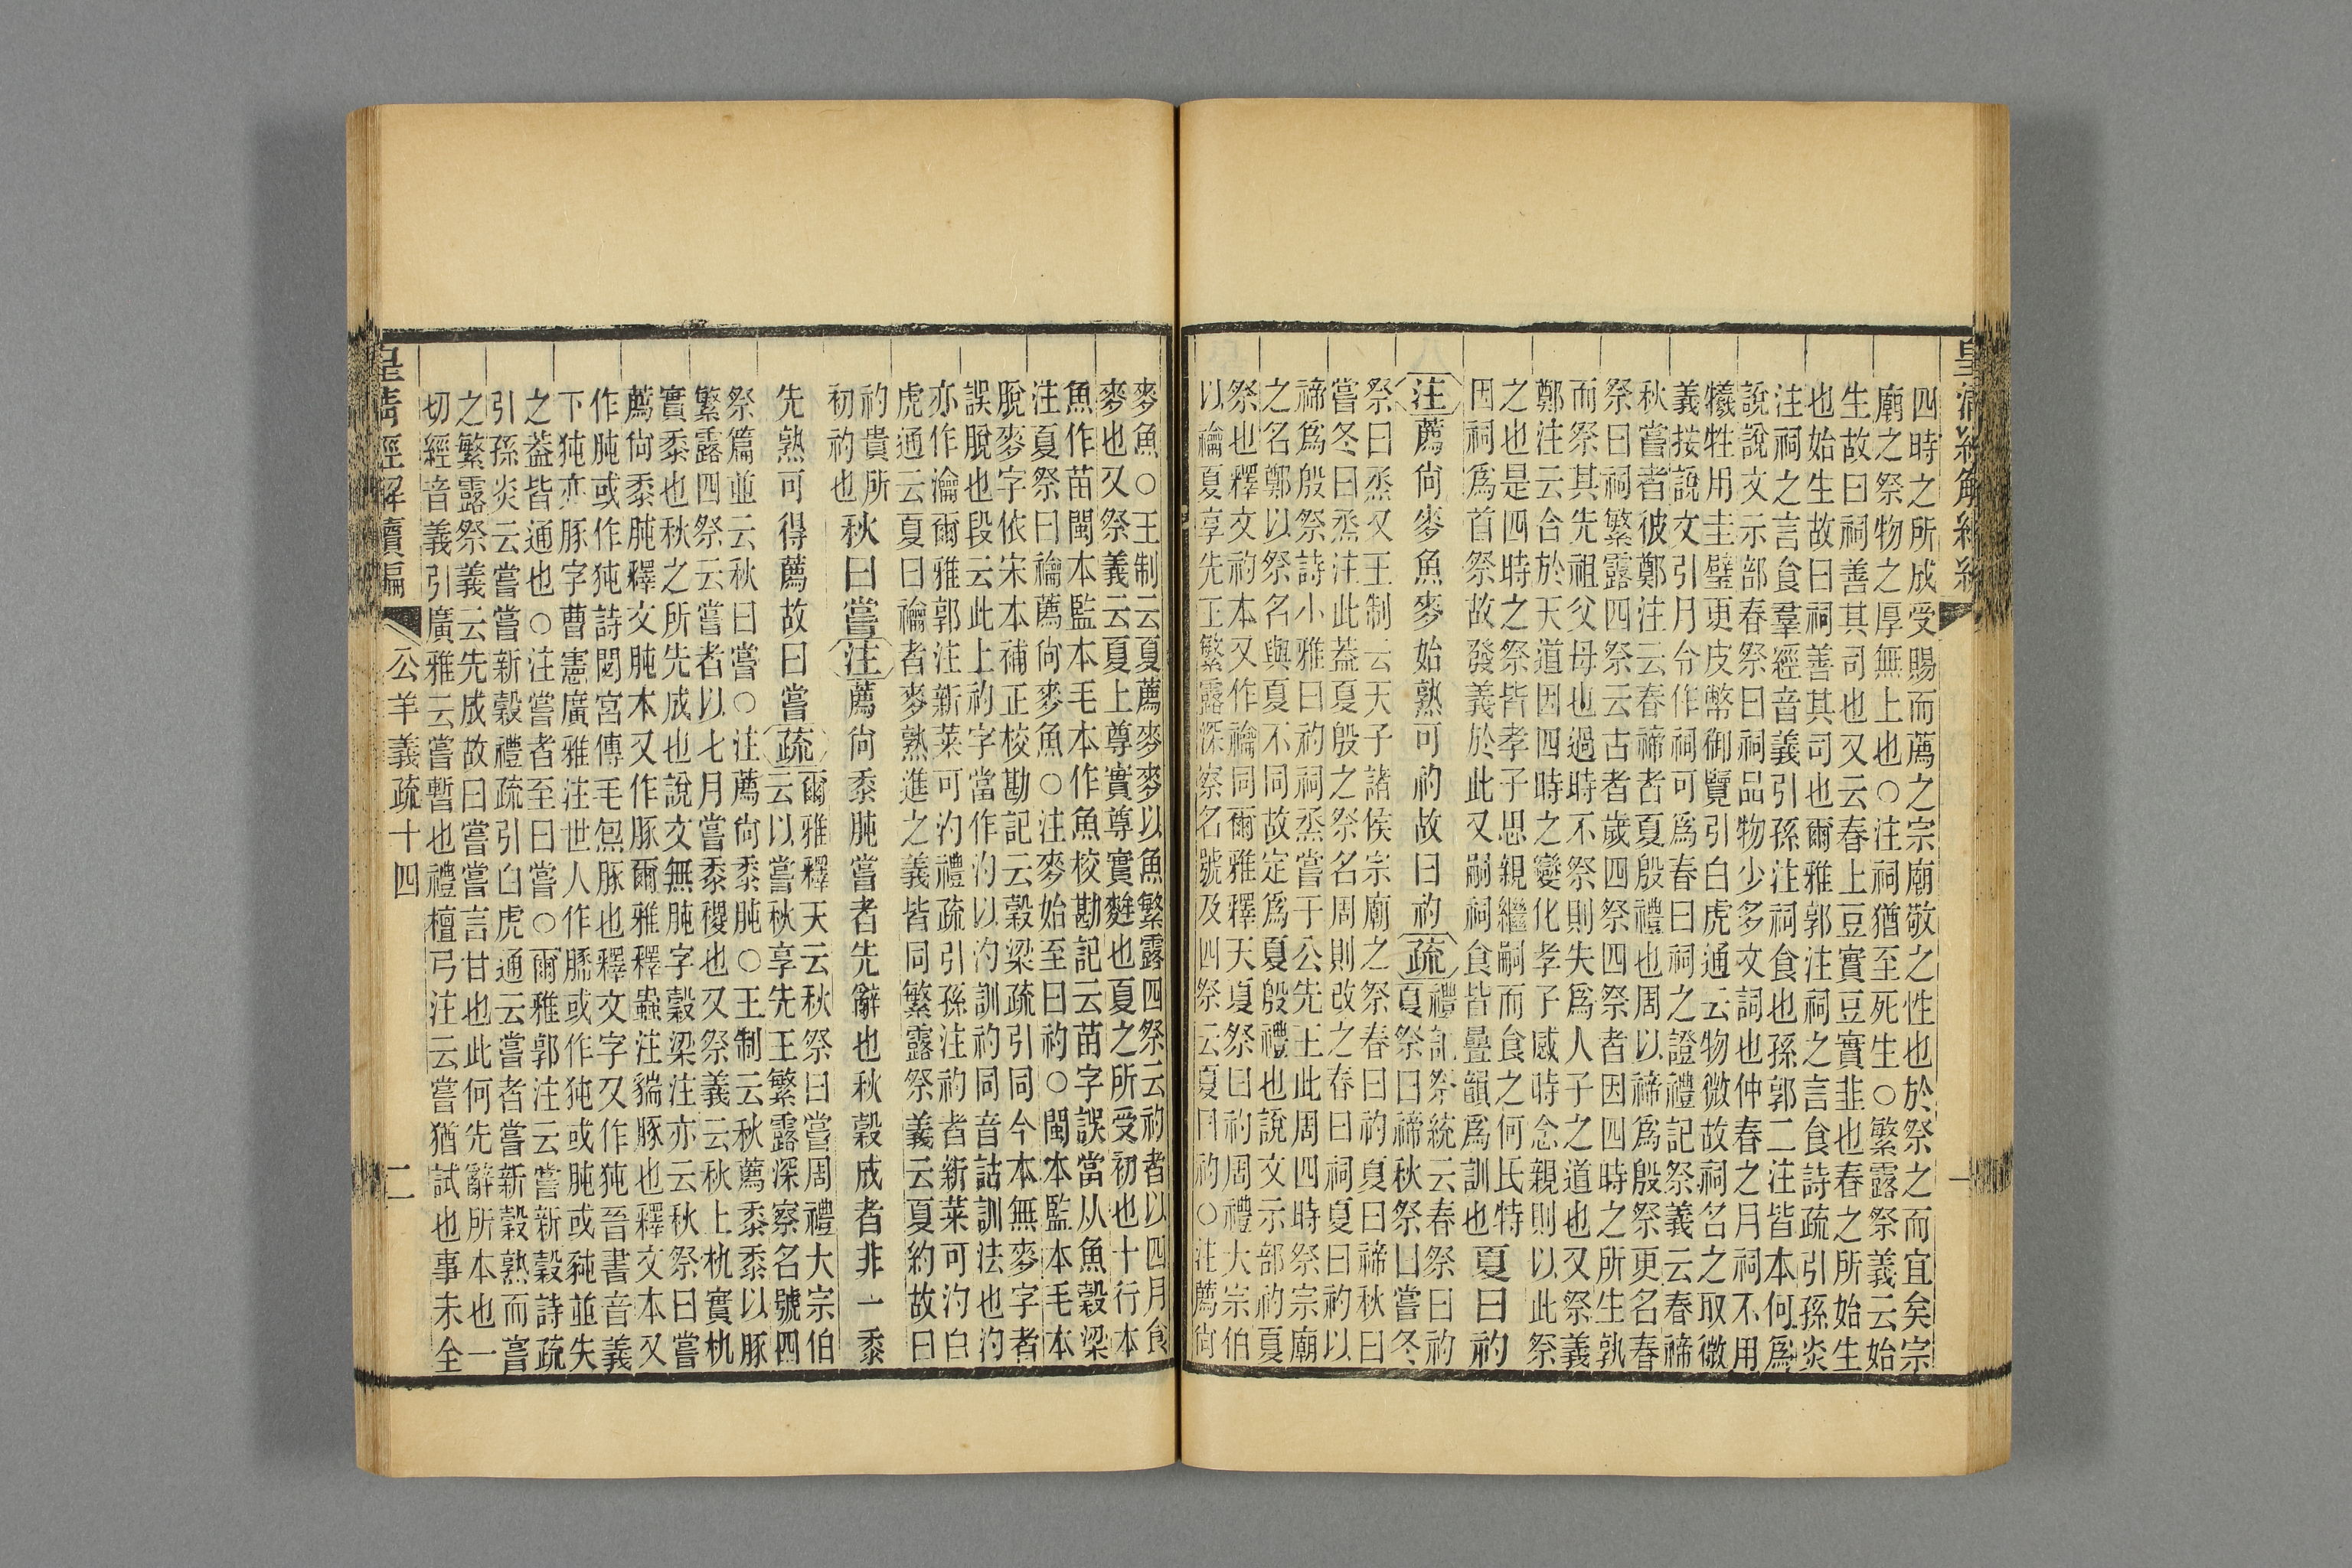 四時之所成受賜而薦之宗廟敬之性也於祭之而宜矣宗
廟之祭物之厚無上也○注祠猶至死生○繁露祭義云始
生故曰祠善其司也又云春上豆實豆實韭也春之所始生
也始生故曰祠善其司也爾雅郭注祠之言食詩疏引孫炎
注祠之言食羣經音義引孫注祠食也孫郭二注皆本何爲
說說文示部春祭曰祠品物少多文詞也仲春之月祠不用
犧牲用圭璧更皮幣御覽引白虎通云物微故祠名之取微
義按說文引月令作祠可爲春曰祠之證禮記祭義云春禘
秋嘗者彼鄭注云春禘者夏殷禮也周以禘爲殷祭更名春
祭曰祠繁露四祭云古者歲四祭四祭者因四時之所生孰
而祭其先祖父母也過時不祭則失爲人子之道也又祭義
鄭注云合於天道因四時之變化孝子感時念親則以此祭
之也是四時之祭皆孝子思親繼嗣而食之何氏特
因祠爲首祭故發義於此又嗣祠食皆疊韻爲訓也
夏曰礿
注薦尙麥魚麥始熟可礿故曰礿疏
禮記祭統云春祭曰礿
夏祭曰禘秋祭曰嘗冬
祭曰烝又王制云天子諸侯宗廟之祭春曰礿夏曰禘秋曰
嘗冬曰烝注此蓋夏殷之祭名周則改之春曰祠夏曰礿以
禘爲殷祭詩小雅曰礿祠烝嘗于公先王此周四時祭宗廟
之名鄭以祭名與夏不同故定爲夏殷禮也說文示部礿夏
祭也釋文礿本又作禴同爾雅釋天夏祭曰礿周禮大宗伯
以禴夏享先王繁露深察名號及四祭云夏曰礿○注薦尙
麥魚○王制云夏薦麥麥以魚繁露四祭云礿者以四月食
麥也又祭義云夏上尊實尊實麷也夏之所受初也十行本
魚作苗閩本監本毛本作魚校勘記云苗字誤當从魚穀梁
注夏祭曰禴薦尙麥魚○注麥始至曰礿○閩本監本毛本
脫麥字依宋本補正校勘記云穀梁疏引同今本無麥字者
誤脫也段云此上礿字當作汋以汋訓礿同音詁訓法也汋
亦作瀹爾雅郭注新菜可汋禮疏引孫注礿者新菜可汋白
虎通云夏曰禴者麥熟進之義皆同繁露祭義云夏約故曰
礿貴所
初礿也
秋曰嘗注薦尙黍肫嘗者先辭也秋穀成者非一黍
先熟可得薦故曰嘗疏
爾雅釋天云秋祭曰嘗周禮大宗伯
云以嘗秋享先王繁露深察名號四
祭篇並云秋曰嘗○注薦尙黍肫○王制云秋薦黍黍以豚
繁露四祭云嘗者以七月嘗黍稷也又祭義云秋上朹實朹
實黍也秋之所先成也說文無肫字穀梁注亦云秋祭曰嘗
薦尙黍肫釋文肫本又作豚爾雅釋蟲注豵豚也釋文本又
作肫或作㹠詩閟宮傳毛炰豚也釋文字又作㹠晉書音義
下㹠亦豚字曹憲廣雅注世人作䐁或作㹠或肫或㹠並失
之蓋皆通也○注嘗者至曰嘗○爾雅郭注云嘗新穀詩疏
引孫炎云嘗嘗新穀禮疏引白虎通云嘗者嘗新穀熟而嘗
之繁露祭義云先成故曰嘗嘗言甘也此何先辭所本也一
切經音義引廣雅云嘗暫也禮檀弓注云嘗猶試也事未全
皇清經解續編
公羊義疏十四
二